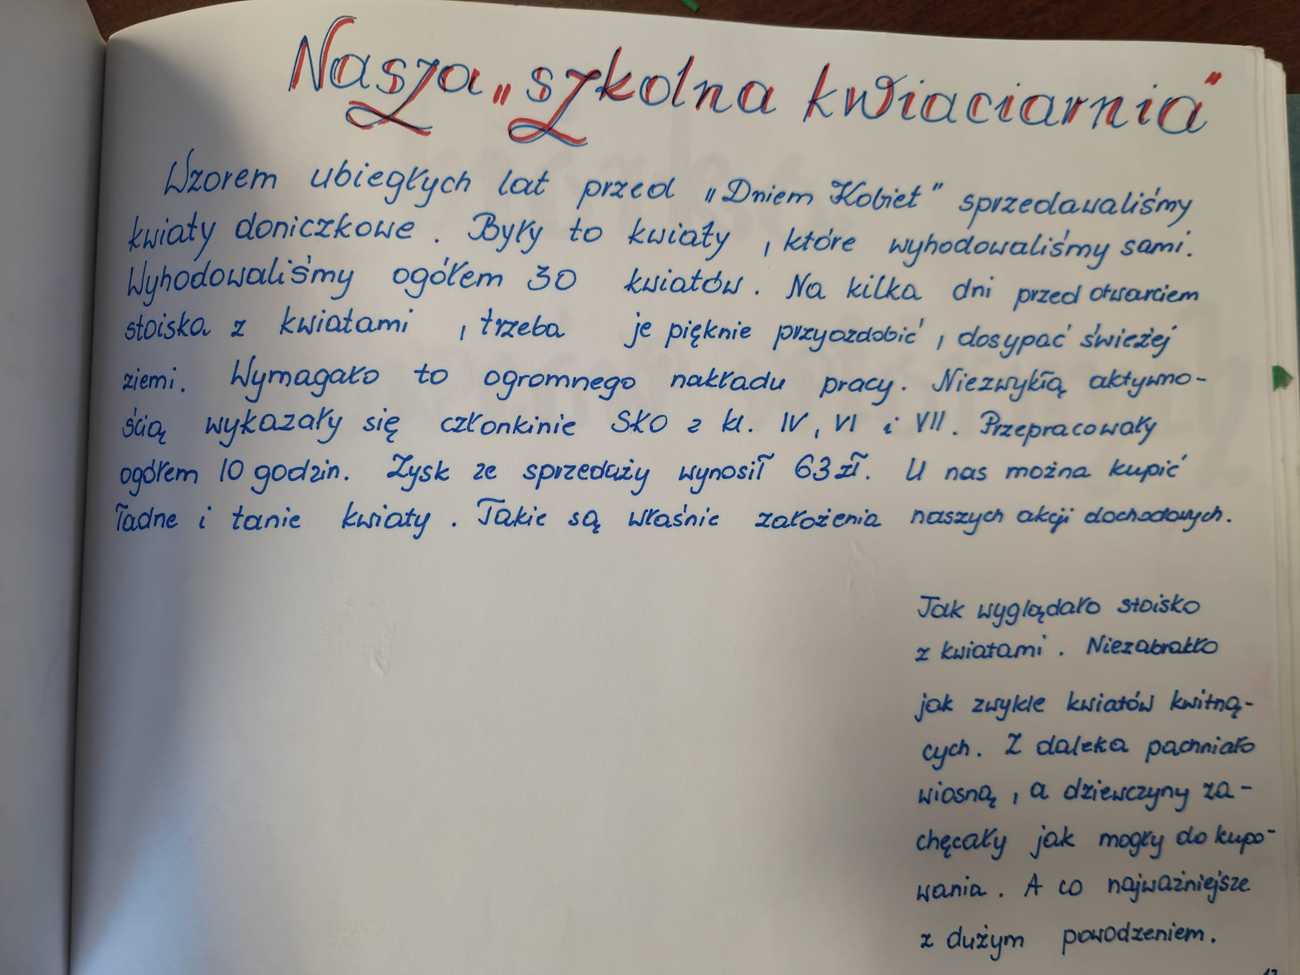 Nasza „szkolna kwiaciarnia"
Wzorem ubiegłych lat przed „Dniem Kobiet" sprzedawaliśmy
kwiaty doniczkowe. Były to kwiaty, które wyhodowaliśmy sami.
Wyhodowaliśmy ogółem 30 kwiatów. Na kilka dni przed otwarciem
stoiska z kwiatami, trzeba je pięknie przyozdobić, dosypać świeżej
ziemi. Wymagało to ogromnego nakładu pracy. Niezwykłą aktywno-
ścią wykazały się członkinie SKO z kl. IV, VI i VII. Przepracowały
ogółem 10 godzin. Zysk ze sprzedaży wynosił 63 zł. U nas można kupić
ładne i tanie kwiaty. Takie są właśnie założenia naszych akcji dochodowych.
Jak wyglądało stoisko
z kwiatami. Niezabrakło
jak zwykle kwiatów kwitną-
cych. Z daleka pachniało
wiosną, a dziewczyny za-
chęcały jak mogły do kupo-
wania. A co najważniejsze
z dużym powodzeniem.